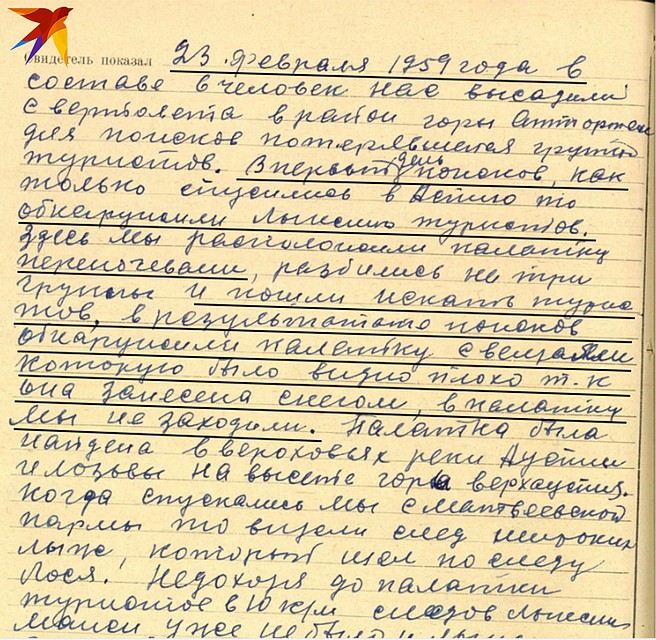 Свидетель показал 23 февраля 1959 года в
составе 8 человек нас высадили
с вертолета в район горы Отортен
для поисков потерявшейся группы
туристов. В первый день поисков, как
только спустились в Ауспию то
обнаружили лыжню туристов.
Здесь мы расположили палатку
переночевали, разбились на три
группы и пошли искать турис
тов, в результате поисков
обнаружили палатку с вещами
которую было видно плохо т.к
она занесена снегом, в палатку
мы не заходили. Палатка была
найдена в верховьях реки Ауспии
и Лозьвы на высоте горы
когда спускались мы с матвеевской
пармы то видели след широких
лыж, который шел по следу
лося. Недоходя до палатки
туристов в 10 км следов лыжни
манси уже не было